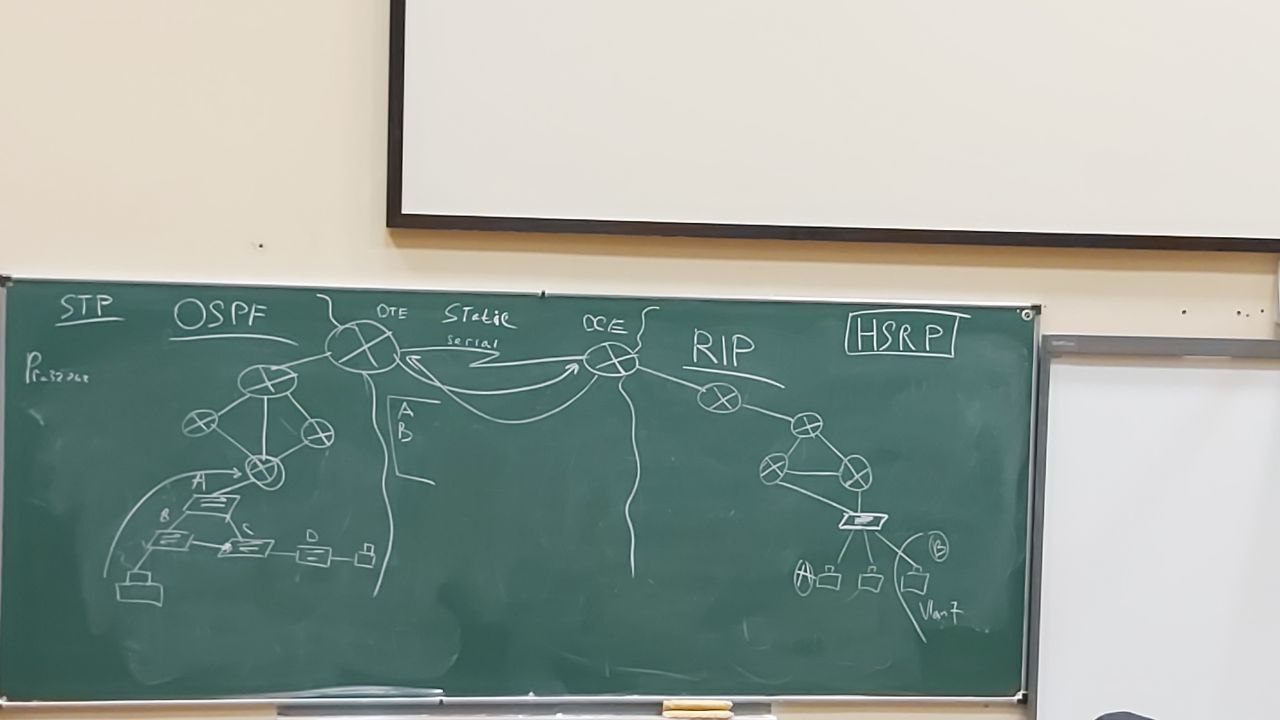 STP
OSPF
DTE
Static
serial
DCE
RIP
HSRP
A
B
A
B
C
D
A
B
Vlan 7